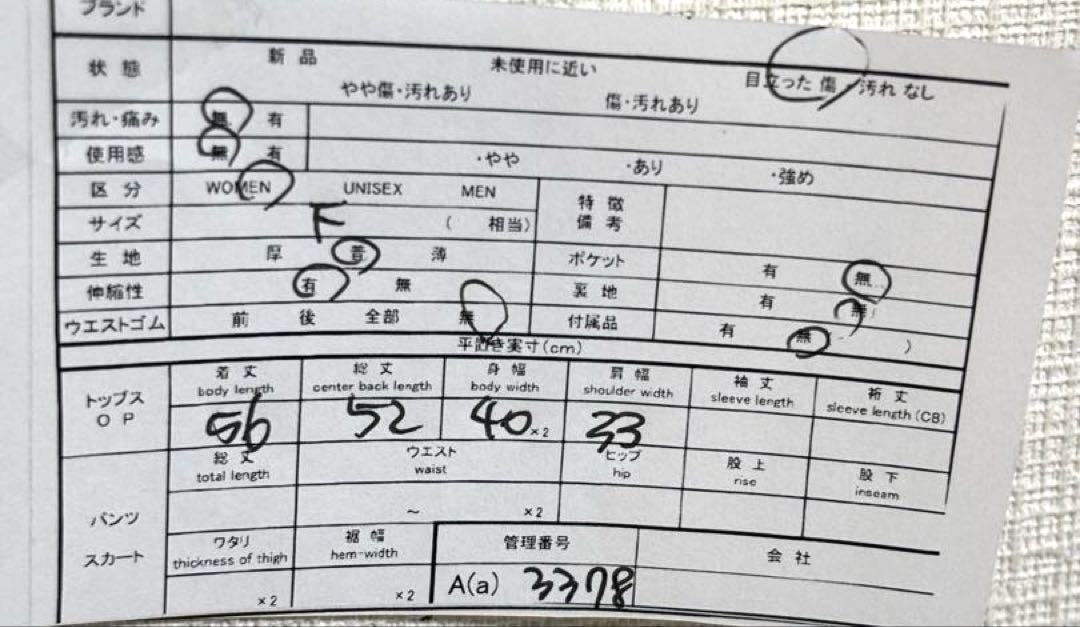 ブランド
状態 新品 未使用に近い 目立った傷・汚れなし
やや傷・汚れあり 傷・汚れあり
汚れ・痛み 無 有
使用感 無 有 ・やや ・あり ・強め
区分 WOMEN UNISEX MEN 特徴
サイズ F ( 相当) 備考
生地 厚 普 薄 ポケット 有 無
伸縮性 有 無 裏地 有 無
ウエストゴム 前 後 全部 無 付属品 有 無 )
平置き実寸(cm)
着丈 総丈 身幅 肩幅 袖丈 裄丈
トップス body length center back length body width shoulder width sleeve length sleeve length (CB)
OP 56 52 40 ×2 33
総丈 ウエスト ヒップ 股上 股下
total length waist hip rise inseam
パンツ ~ ×2
ワタリ 裾幅 管理番号 会社
スカート thickness of thigh hem-width
×2 ×2 A(a) 3378